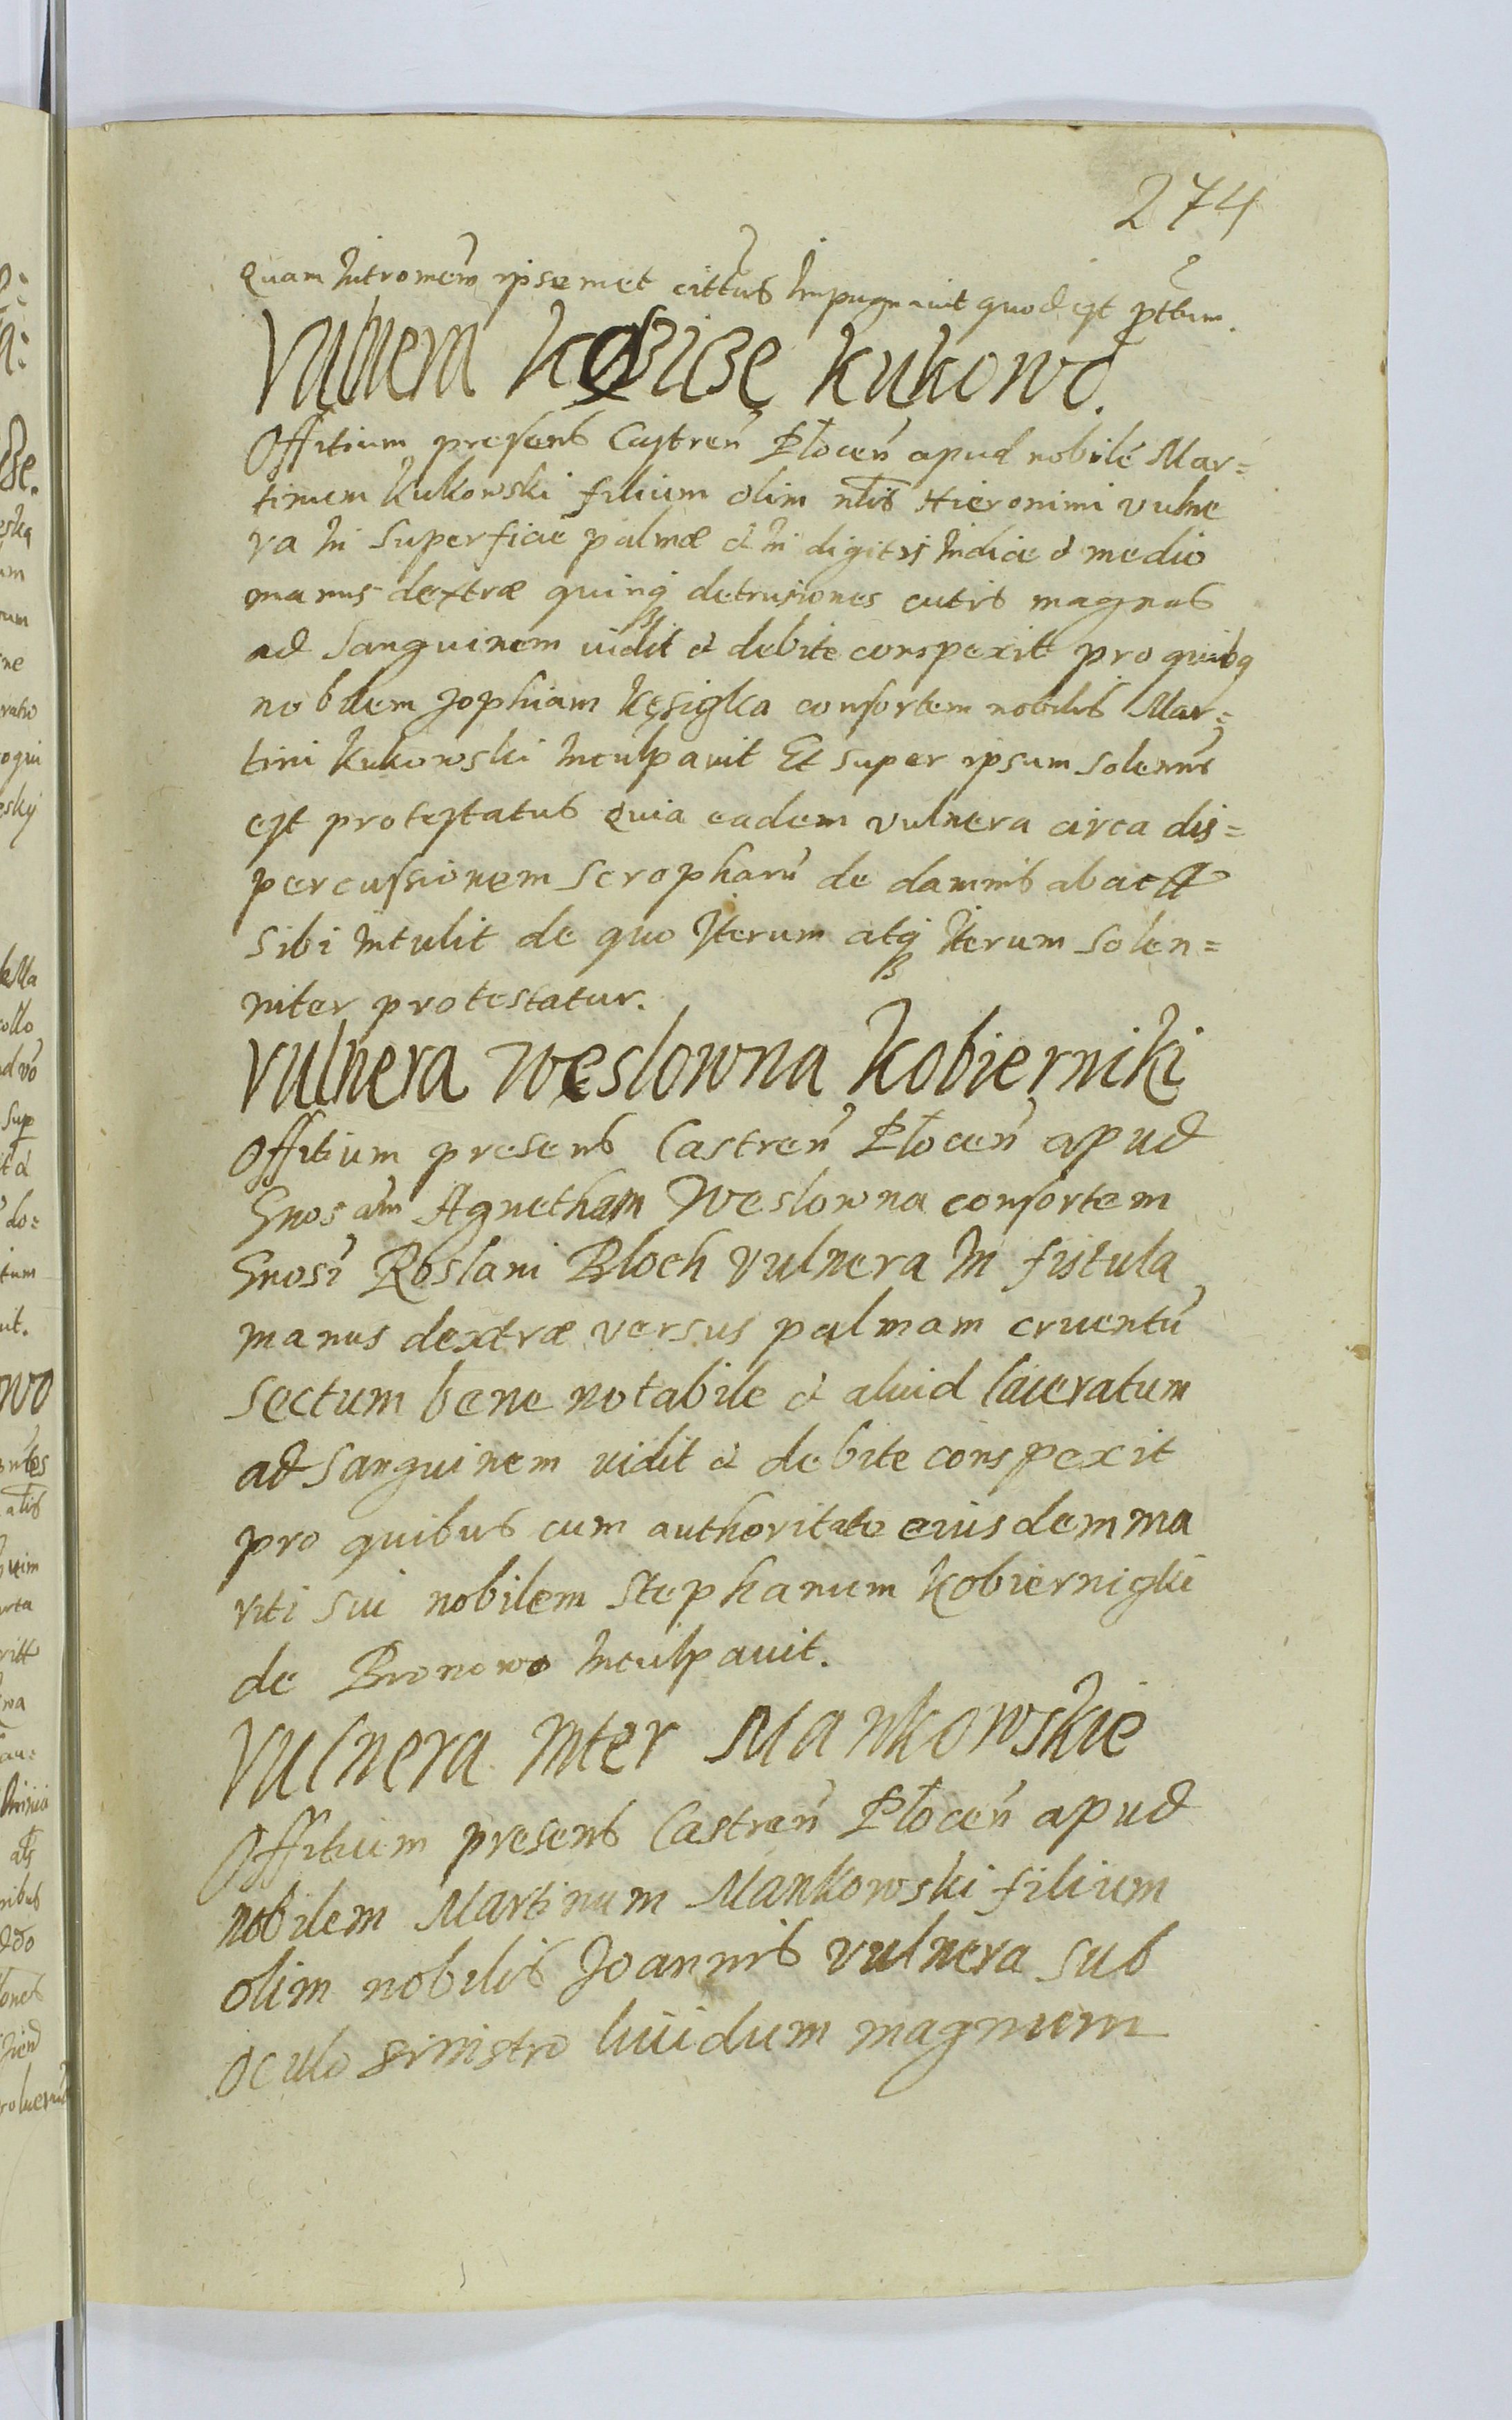 274
Quam Intromem̃ ipsemet cittus Impugnauit quod est ꝓttum.
Vulnera Kukowo.
Offitium presens Castreñ Płoceñ apud nobile Mar=
tinum Kukowski filium olim nlis Hieronimi vulne
ra In superficie palmæ & In digitis Indice & medio
manus dextræ quinq detrusiones cutis magnas
ad Sanguinem vidit & debite conspexit pro quibq
nobilem Zophiam Kęsiska consortem nobilis Mar=
tini Kukowski Inculpauit Et super ipsum solenns
est protestatus Quia eadem vulnera circa dis=
percussionem Scropharũ de damnis abacta
sibi Intulit de quo Iterum atq Iterum solen=
niter protestatur.
Vulnera Weslowna Kobierniki
Offitium presens Castreñ Płoceñ apud
Gnosam Agnetham Weslowna consortem
Gnosi Roslani Bloch Vulnera In fistula
manus dextræ versus palmam cruentũ
sectum bene notabile & aliud laceratum
ad Sanguinem vidit & debite conspexit
pro quibus cum authoritate eiusdem ma
riti sui nobilem Stephanum Kobierniski
de Bronowo Inculpauit.
Vulnera Inter Mankowskie
Offitium presens Castreñ Płoceñ apud
nobilem Martinum Mankowski filium
olim nobilis Joannis vulnera sub
oculo sinistro liuidum magnum